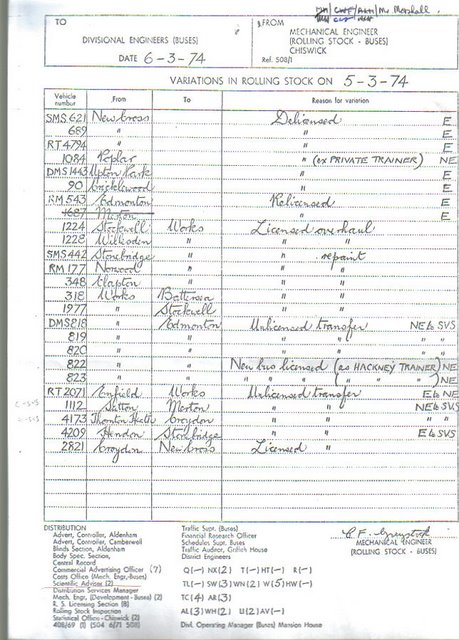 Mr Marshall.
TO
DIVISIONAL ENGINEERS (BUSES)
DATE 6-3-74
FROM
MECHANICAL ENGINEER
(ROLLING STOCK - BUSES)
CHISWICK
Ref. 508/1
VARIATIONS IN ROLLING STOCK ON 5-3-74
Vehicle number From To Reason for variation
SMS 621 New Cross Delicensed E
689 " " E
RT 4794 " " E
1084 Poplar " (ex PRIVATE TRAINER) NE
DMS 1443 Upton Park " E
90 Cricklewood " E
RM 543 Edmonton Relicensed E
1687 Merton " E
1224 Stockwell Works Licensed overhaul
1228 Willesden " " "
SMS 442 Stonebridge " " repaint
RM 177 Norwood " " "
348 Clapton " " "
318 Works Battersea " "
1977 " Stockwell " "
DMS 818 " Edmonton Unlicensed transfer NE to SVS
819 " " " " " " "
820 " " " " " " "
822 " " New bus licensed (as HACKNEY TRAINER) NE
823 " " " " " ( " " ) NE
RT 2071 Enfield Works Unlicensed transfer E to NE
1112 Sutton Merton " " NE to SVS
4173 Thornton Heath Croydon " " " " "
4209 Hendon Stonebridge " " E to SVS
2821 Croydon New Cross Licensed "
DISTRIBUTION
Advert, Controller, Aldenham
Advert, Controller, Camberwell
Blinds Section, Aldenham
Body Spec. Section,
Central Record
Commercial Advertising Officer (7)
Costs Office (Mech. Engr, Buses)
Scientific Adviser (2)
Distribution Services Manager
Mech. Engr, (Development - Buses) (2)
R. S. Licensing Section (8)
Rolling Stock Inspection
Statistical Office - Chiswick (2)
408/69 (1) (504 6/71 508)
Traffic Supt. (Buses)
Financial Research Officer
Schedules Supt. Buses
Traffic Auditor, Griffith House
District Engineers
Q(—) NX(2) T(—) HT(—) R(—)
TL(—) SW(3) WN(2) W(5) HW(—)
TC(4) AR(3)
AL(3) WH(2) U(2) AV(—)
Divl. Operating Manager (Buses) Mansion House
MECHANICAL ENGINEER
(ROLLING STOCK - BUSES)